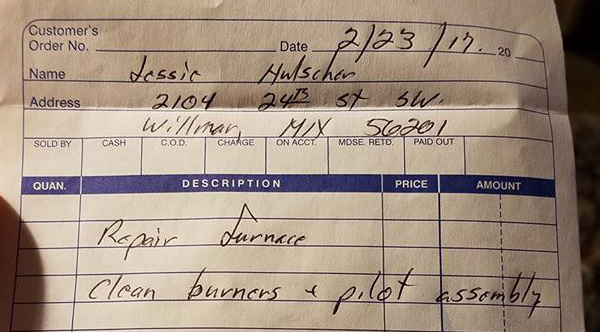 Customer's
Order No. Date 2/23/17. 20
Name Jessie Hulscher
Address 2104 24th St SW.
Willmar, MN 56201
SOLD BY CASH C.O.D. CHARGE ON ACCT. MDSE. RETD. PAID OUT
QUAN. DESCRIPTION PRICE AMOUNT
Repair furnace
Clean burners + pilot assembly